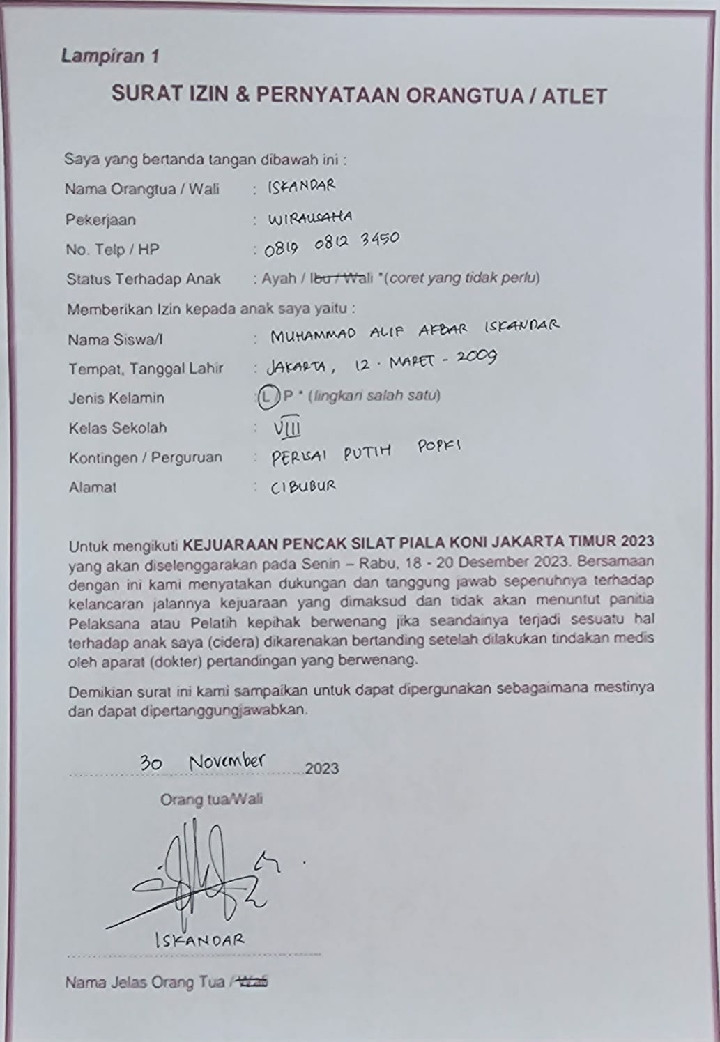 Lampiran 1
SURAT IZIN & PERNYATAAN ORANGTUA / ATLET
Saya yang bertanda tangan dibawah ini :
Nama Orangtua / Wali : ISKANDAR
Pekerjaan : WIRAUSAHA
No. Telp / HP : 0819 0812 3450
Status Terhadap Anak : Ayah / Ibu / Wali *(coret yang tidak perlu)
Memberikan Izin kepada anak saya yaitu :
Nama Siswa/I : MUHAMMAD ALIF AKBAR ISKANDAR
Tempat, Tanggal Lahir : JAKARTA, 12 - MARET - 2009
Jenis Kelamin : L / P * (lingkari salah satu)
Kelas Sekolah : VIII
Kontingen / Perguruan : PERISAI PUTIH POPKI
Alamat : CIBUBUR
Untuk mengikuti KEJUARAAN PENCAK SILAT PIALA KONI JAKARTA TIMUR 2023
yang akan diselenggarakan pada Senin – Rabu, 18 - 20 Desember 2023. Bersamaan
dengan ini kami menyatakan dukungan dan tanggung jawab sepenuhnya terhadap
kelancaran jalannya kejuaraan yang dimaksud dan tidak akan menuntut panitia
Pelaksana atau Pelatih kepihak berwenang jika seandainya terjadi sesuatu hal
terhadap anak saya (cidera) dikarenakan bertanding setelah dilakukan tindakan medis
oleh aparat (dokter) pertandingan yang berwenang.
Demikian surat ini kami sampaikan untuk dapat dipergunakan sebagaimana mestinya
dan dapat dipertanggungjawabkan.
30 November 2023
Orang tua/Wali
ISKANDAR
Nama Jelas Orang Tua / Wali